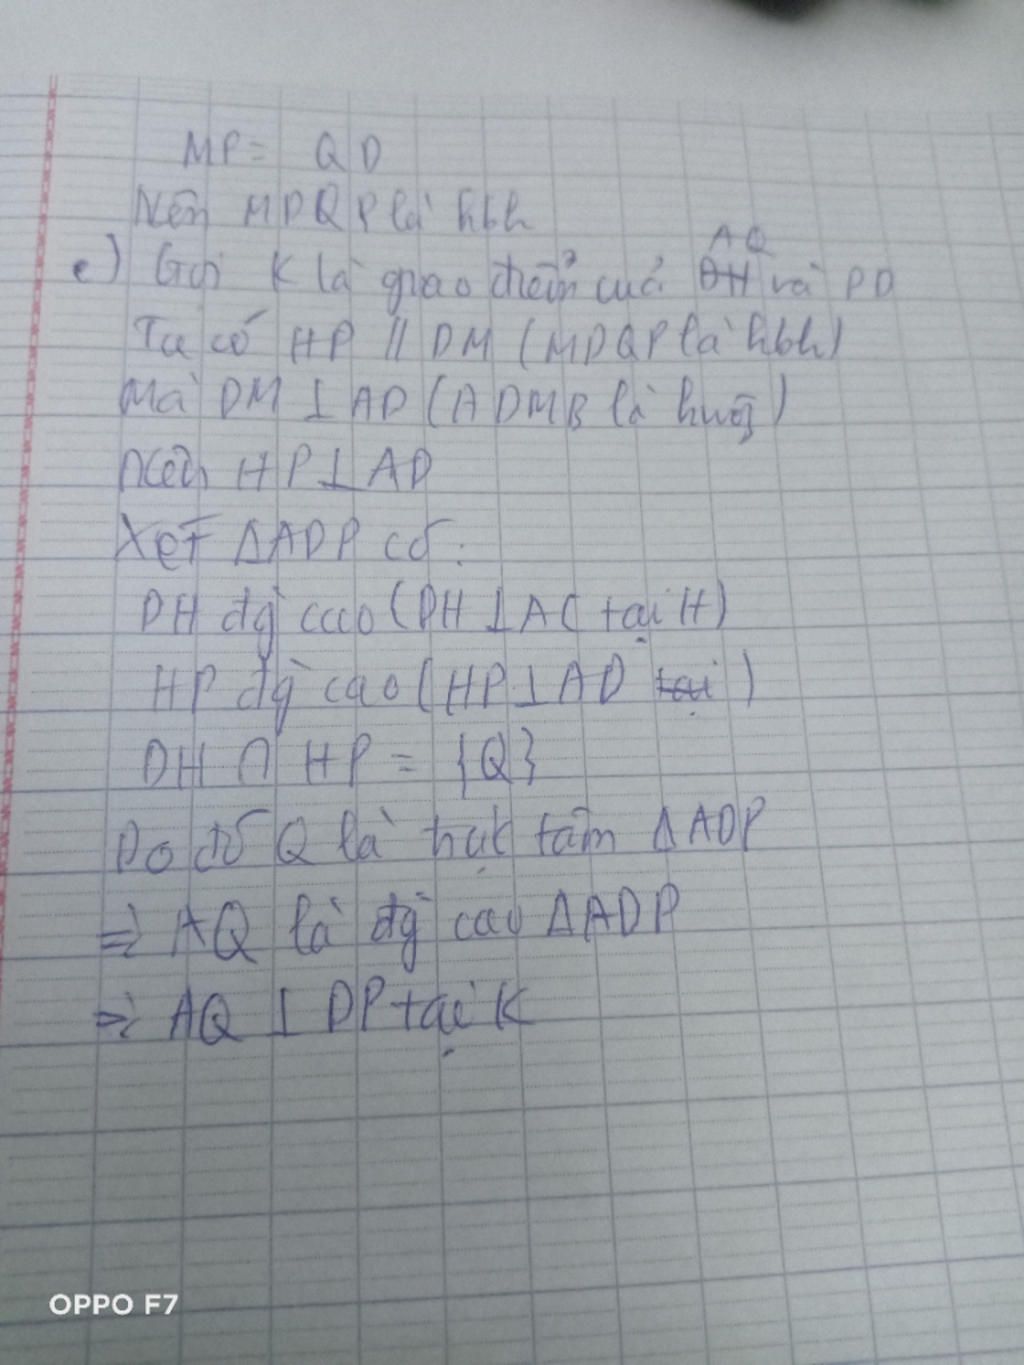 MP = QD
Nên MDQP là hbh
c) Gọi K là giao điểm của AQ và PD
Ta có HP // DM (MDQP là hbh)
Mà DM ⊥ AD (ADMB là hvuông)
Nên HP ⊥ AD
Xét ΔADP có:
DH đg cao (DH ⊥ AC tại H)
HP đg cao (HP ⊥ AD tại)
DH ∩ HP = {Q}
Do đó Q là trực tâm ΔADP
⇒ AQ là đg cao ΔADP
⇒ AQ ⊥ DP tại K
OPPO F7